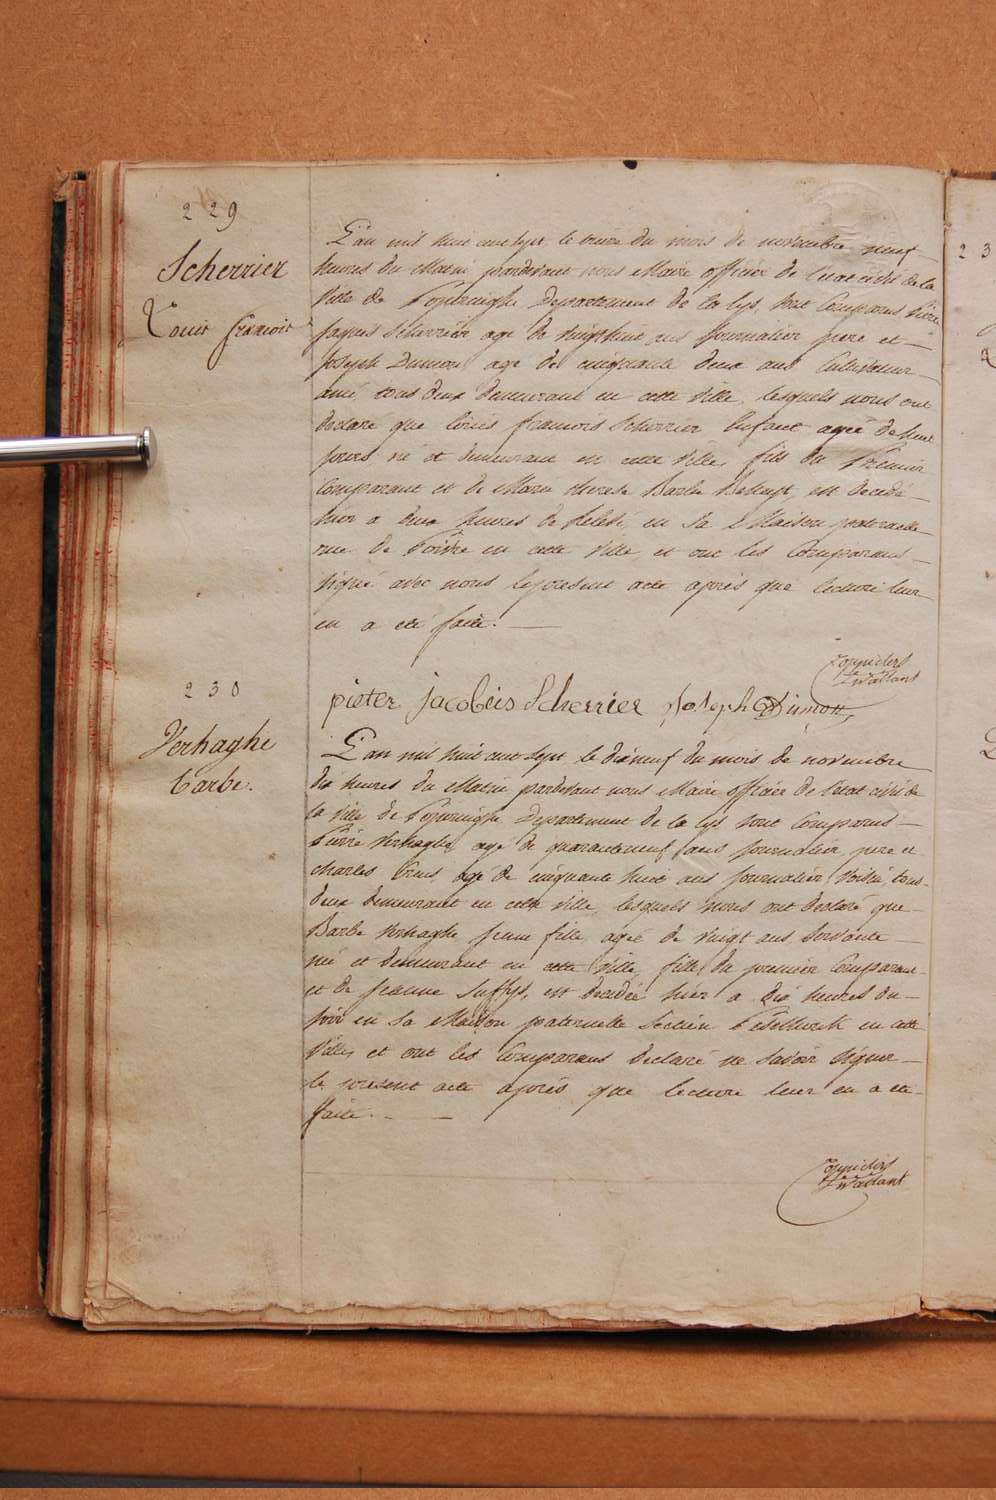 229
Scherrier
Louis françois
L'an mil huit cent sept le treize du mois de novembre neuf
heures du Matin pardevant nous Maire officier de l'état civil de la
ville de Poperinghe Departement de la lys, sont Comparus Pierre
Jaques Scherrier agé de vingt huit ans Journalier pere et
Joseph Dumon agé de cinquante deux ans Cultivateur
ami, tous deux demeurant en cette ville, lesquels nous ont
declaré que Louis françois Scherrier Enfant agé de huit
jours né et demeurant en cette ville, fils du Premier
Comparant et de Marie therese Barbe est decedé
hier a deux heures de relevé, en sa Maison paternelle
rue de en cette ville et ont les Comparans
signé avec nous le present acte après que lecture leur
en a été faite.
pieter jacobus Scherrier Joseph Dumon
230
Verhaghe
barbe.
L'an mil huit cent sept le dixneuf du mois de novembre
dix heures du Matin pardevant nous Maire officier de l'état civil de
la ville de Poperinghe Departement de la lys sont Comparus
Pierre Verhaghe agé de quaranteneuf ans Journalier pere et
charles agé de cinquante huit ans Journalier voisin, tous
deux demeurant en cette ville, lesquels nous ont declaré que
Barbe Verhaghe jeune fille agée de vingt ans Servante
née et demeurant en cette ville, fille du premier Comparant
et de jeanne est decedée hier a dix heures du
soir en sa Maison paternelle Section en cette
ville, et ont les Comparans declaré ne savoir signer
le present acte après que lecture leur en a été
faite.
23